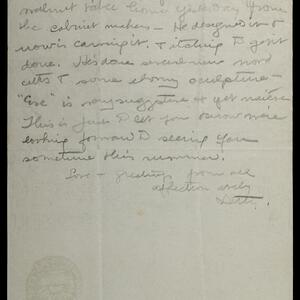 walnut table home yesterday from
the cabinet makers - He designed it &
now is carving it, & itching to get it
done. He's done several new wood
cuts & some ebony sculpture -
"Eve" is very suggestive & yet naive.
This is just to let you know we're
looking forward to seeing you
sometime this summer.
Love & greetings from all
affectionately